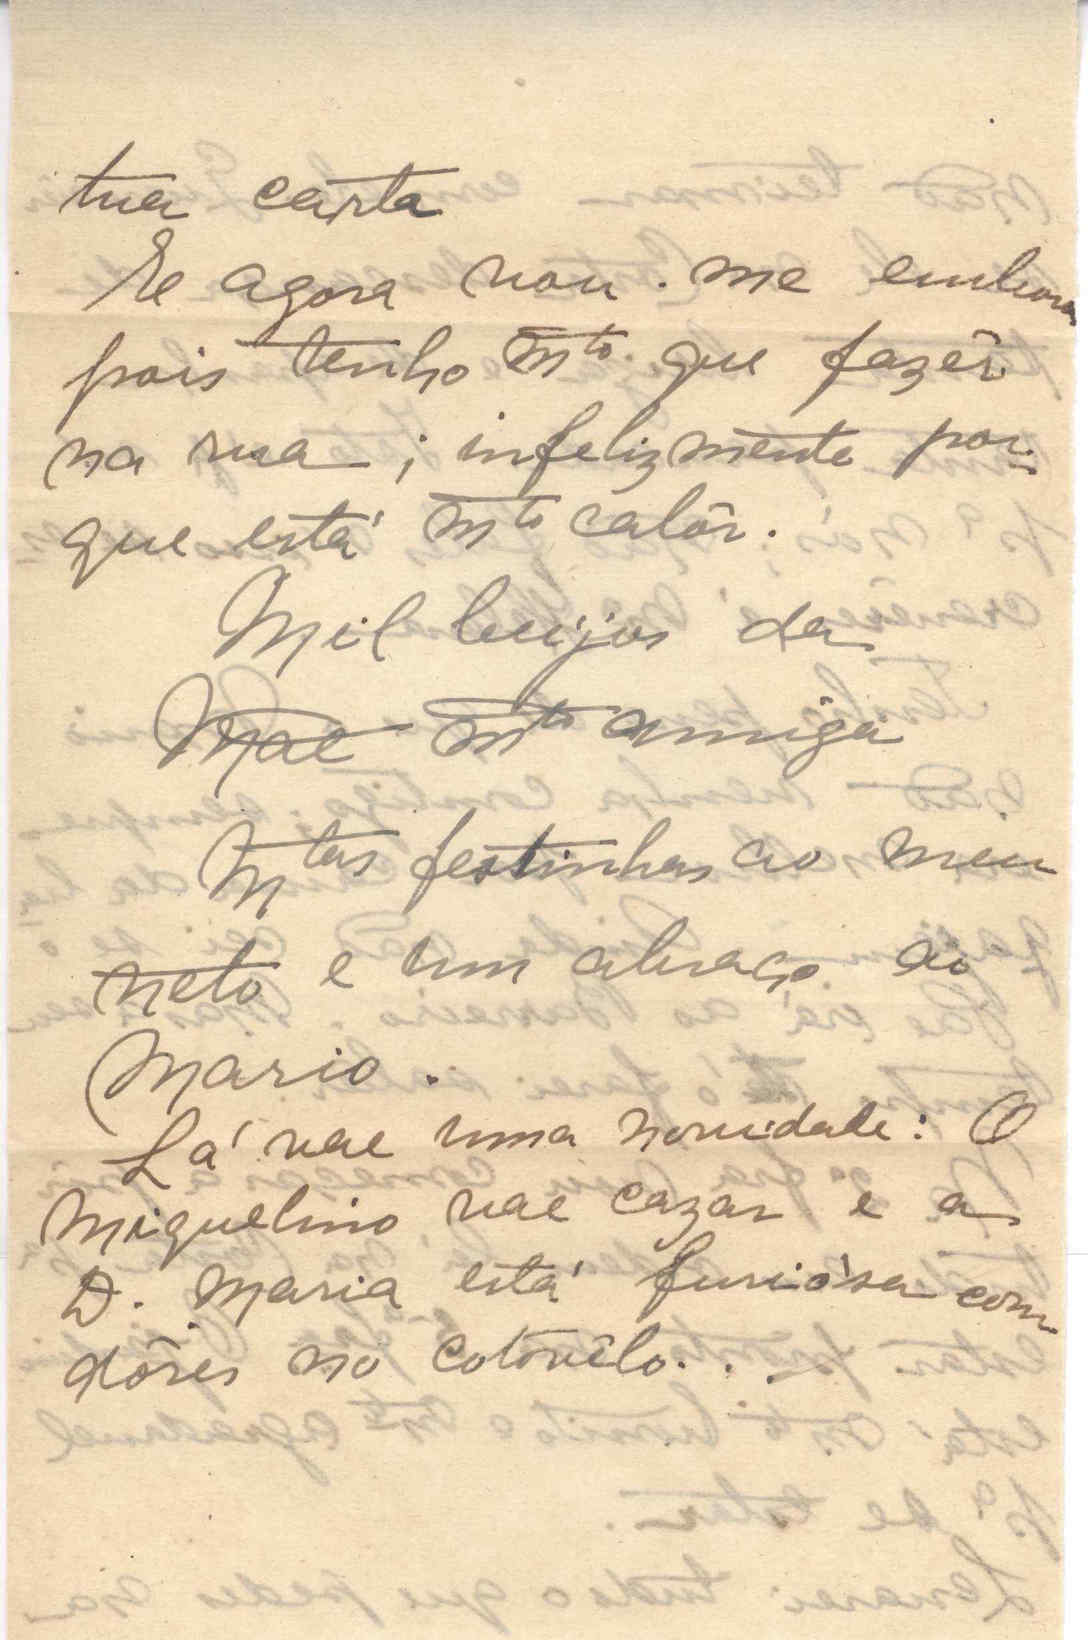 tua carta
E agora vou-me embora
pois tenho mto. que fazêr
na rua; infelizmente por-
que está mto calôr.
Mil beijos da
Mãe mto amiga
Mtas festinhas ao meu
neto e um abraço ao
Mario.
Lá vae uma novidade: O
Miguelino vae cazar e a
D. Maria está furiósa com
dôres no cotovêlo...